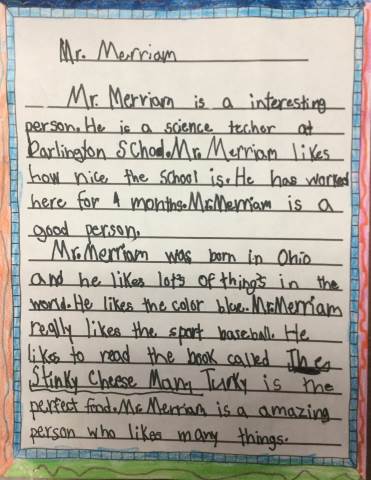 Mr. Merriam
Mr. Merriam is a interesting
person. He is a science techer at
Darlington School. Mr. Merriam likes
how nice the school is. He has worked
here for 4 months. Mr. Merriam is a
good person.
Mr. Merriam was born in Ohio
and he likes lots of things in the
world. He likes the color blue. Mr. Merriam
really likes the sport baseball. He
likes to read the book called The
Stinky Cheese Man, Turky is the
perfect food. Mr. Merriam is a amazing
person who likes many things.